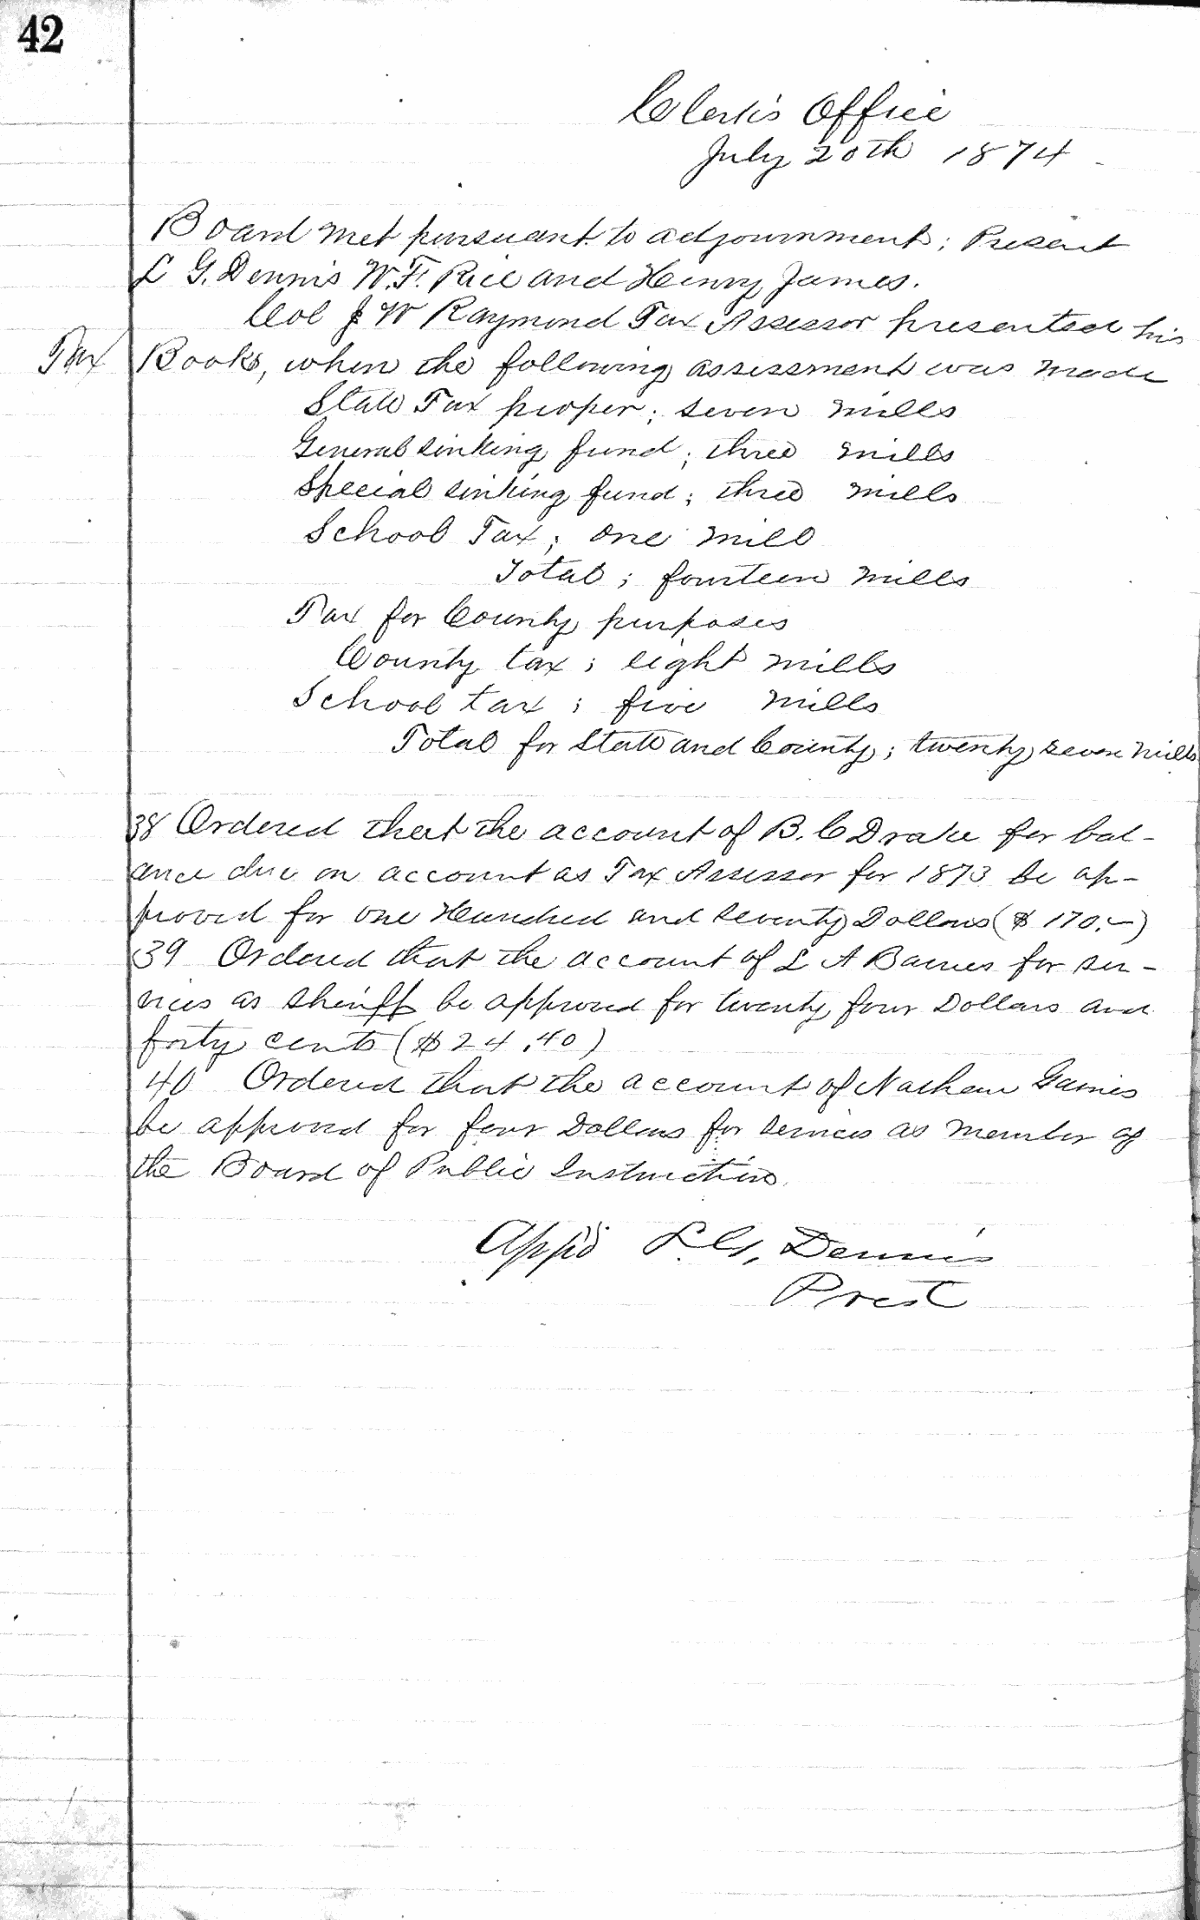 42
Clerk's Office
July 20th 1874
Board met pursuant to adjournment; Present
L G. Dennis W. F. Rice and Henry James.
Col J W Raymond Tax Assessor presented his
Tax Books, when the following assessment was made
State Tax proper; seven mills
General sinking fund; three mills
Special sinking fund; three mills
School Tax; one mill
Total; fourteen mills
Tax for County purposes
County tax; eight mills
School tax; five mills
Total for State and County; twenty seven mills
38 Ordered that the account of B. C Drake for bal-
ance due on account as Tax Assessor for 1873 be ap-
proved for one Hundred and Seventy Dollars ($ 170.-)
39 Ordered that the account of L A Barnes for ser-
vices as Sheriff be approved for twenty four Dollars and
forty cents ($ 24.40)
40 Ordered that the account of Nathan Gaines
be approved for four Dollars for services as member of
the Board of Public Instruction.
App'd L. G. Dennis
Prest